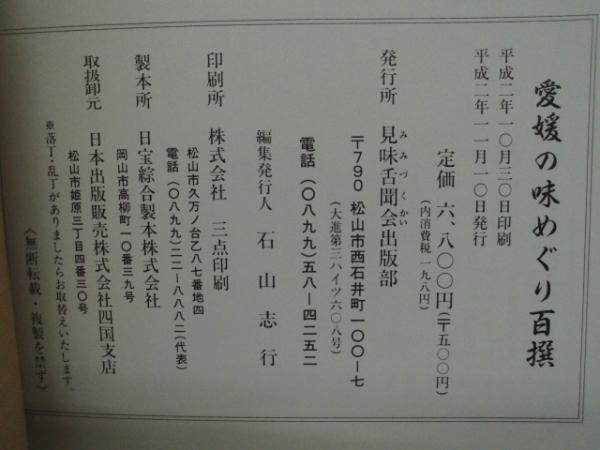 愛媛の味めぐり百撰
平成二年一〇月三〇日印刷
平成二年一一月一〇日発行
定価 六、八〇〇円(〒五〇〇円)
(内消費税 一九八円)
発行所 見味舌聞会出版部
みみづくかい
〒790 松山市西石井町一〇〇―七
(大進第三ハイツ六〇八号)
電話(〇八九九)五八―四二五二
編集発行人 石山志行
印刷所 株式会社 三点印刷
松山市久万ノ台乙八七番地四
電話(〇八九九)二二―八八八二(代表)
製本所 日宝綜合製本株式会社
岡山市高柳町一〇番三九号
取扱卸元 日本出版販売株式会社四国支店
松山市姫原三丁目四番三〇号
※落丁・乱丁がありましたらお取替えいたします。
《無断転載・複製を禁ず》